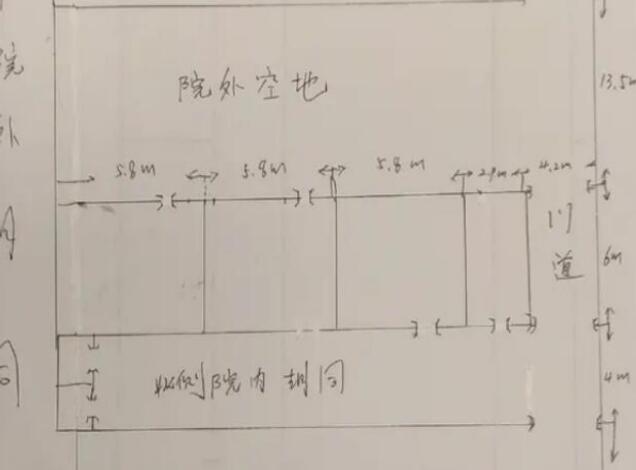 院外空地
13.5m
5.8m 5.8m 5.8m 2.9m 4.2m
门道
6m
院内胡同
4m
院
外